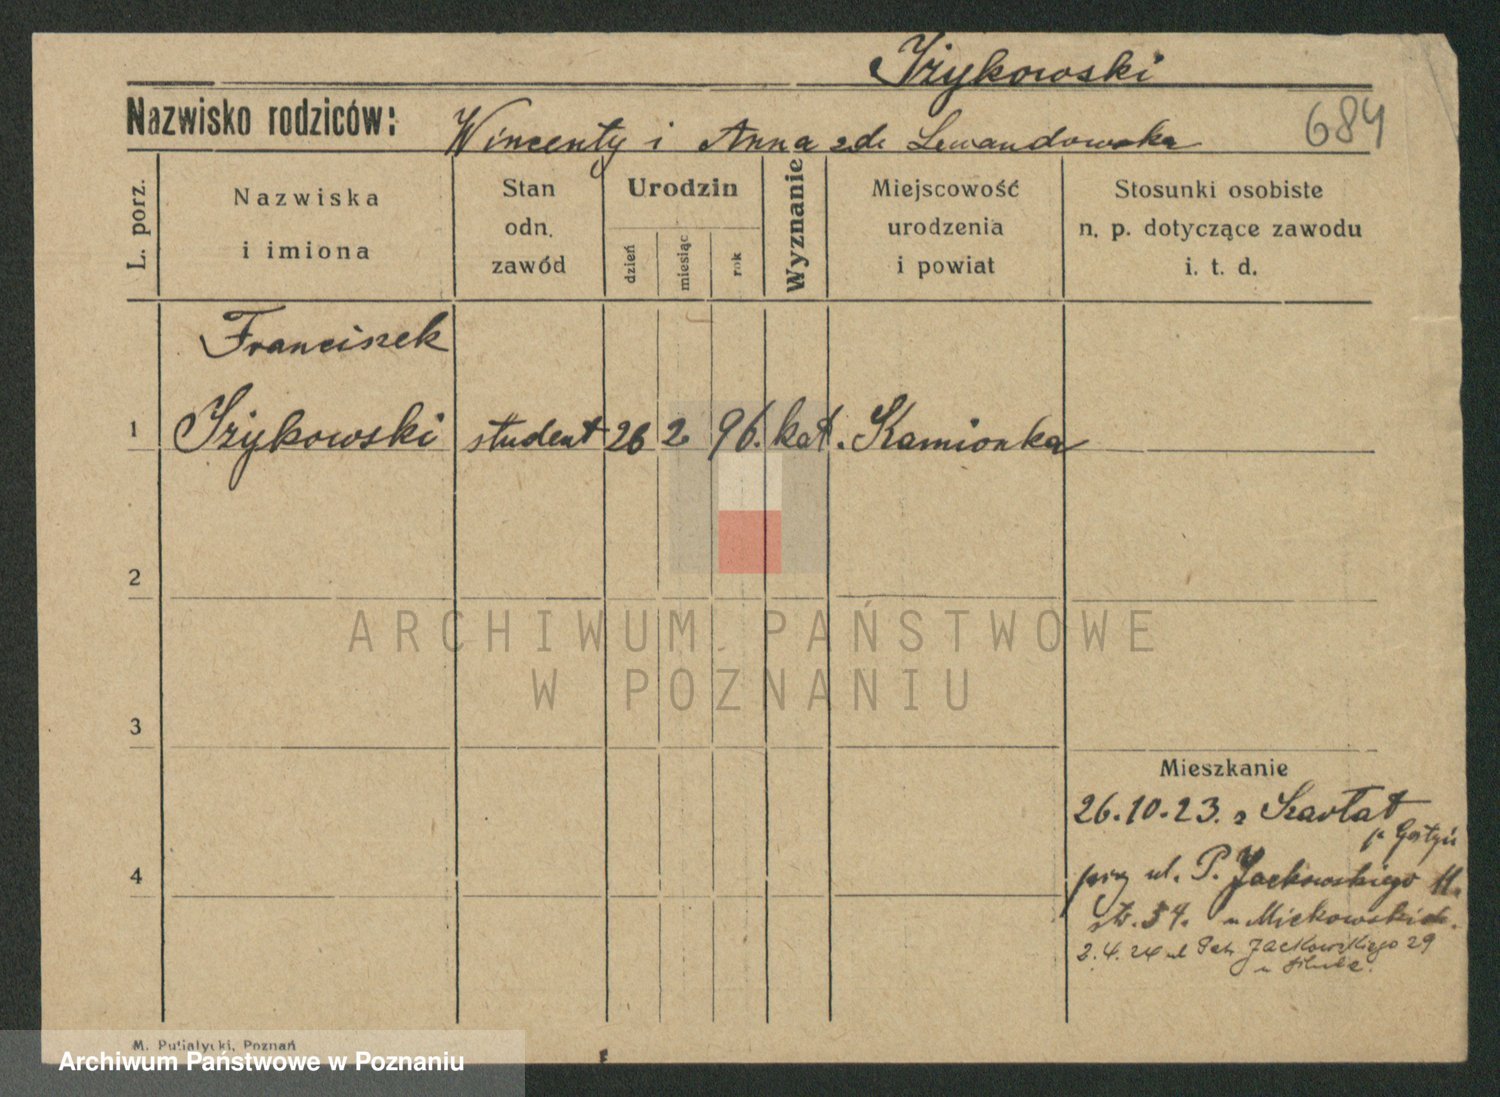 Iżykowski
684
Nazwisko rodziców: Wincenty i Anna zd. Lewandowska
L. porz.
Nazwiska i imiona
Stan odn. zawód
Urodzin
dzień
miesiąc
rok
Wyznanie
Miejscowość urodzenia i powiat
Stosunki osobiste n. p. dotyczące zawodu i. t. d.
Franciszek
1 Iżykowski student 26 2. 96. kat. Kamionka
2
3
4
Mieszkanie
26.10.23. z Szarłat
p. Gostyń
przy ul. P. Jackowskiego
str. 34. u
2.4.24 ul Patr. Jackowskiego 29
u
ARCHIWUM PAŃSTWOWE
W POZNANIU
M. Putiatycki, Poznań
Archiwum Państwowe w Poznaniu